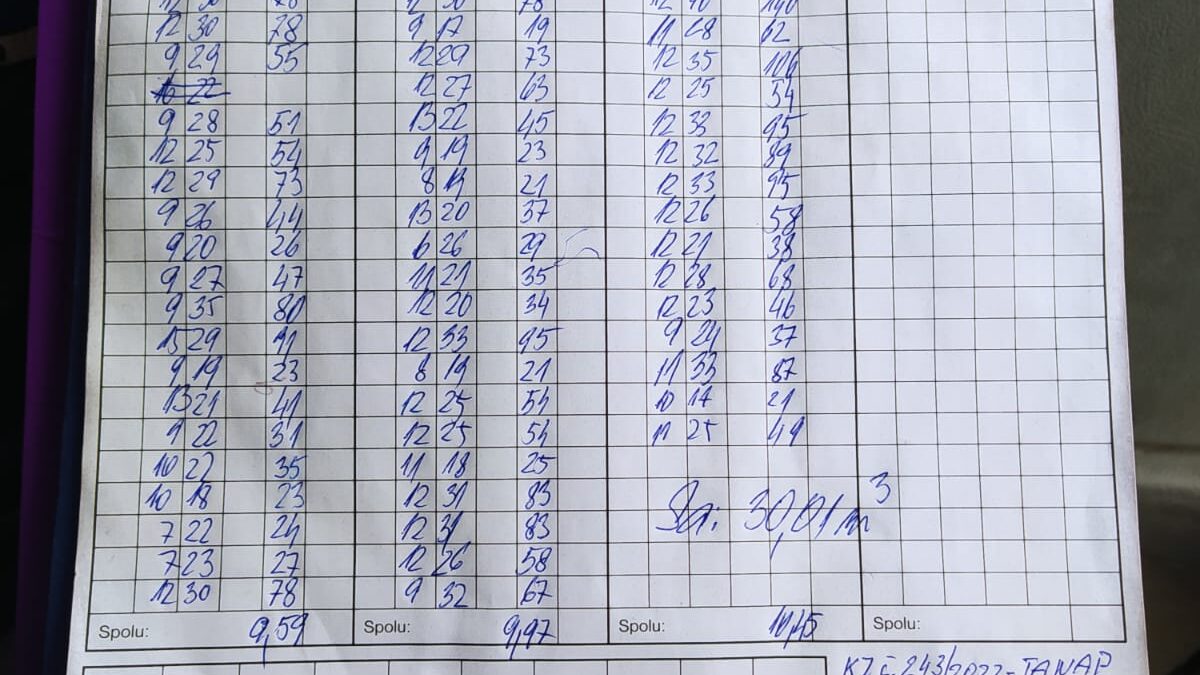 12 30 78 9 17 19 11 28 62
9 29 55 12 29 73 12 35 106
16 22 12 27 63 12 25 54
9 28 51 13 22 45 12 33 95
12 25 54 9 19 23 12 32 89
12 29 73 8 19 21 12 33 95
9 26 44 13 20 37 12 26 58
9 20 26 6 26 29 12 21 38
9 27 47 11 21 35 12 28 68
9 35 80 12 20 34 12 23 46
15 29 91 12 33 95 9 24 37
9 19 23 8 19 21 11 33 87
13 21 41 12 25 54 10 17 21
9 22 31 12 25 54 11 25 49
10 22 35 11 18 25
10 18 23 12 31 83
7 22 24 12 31 83
7 23 27 12 26 58
12 30 78 9 32 67
30,01 m³
Spolu: 9,59 Spolu: 9,97 Spolu: 10,45 Spolu:
243/2022-TANAP